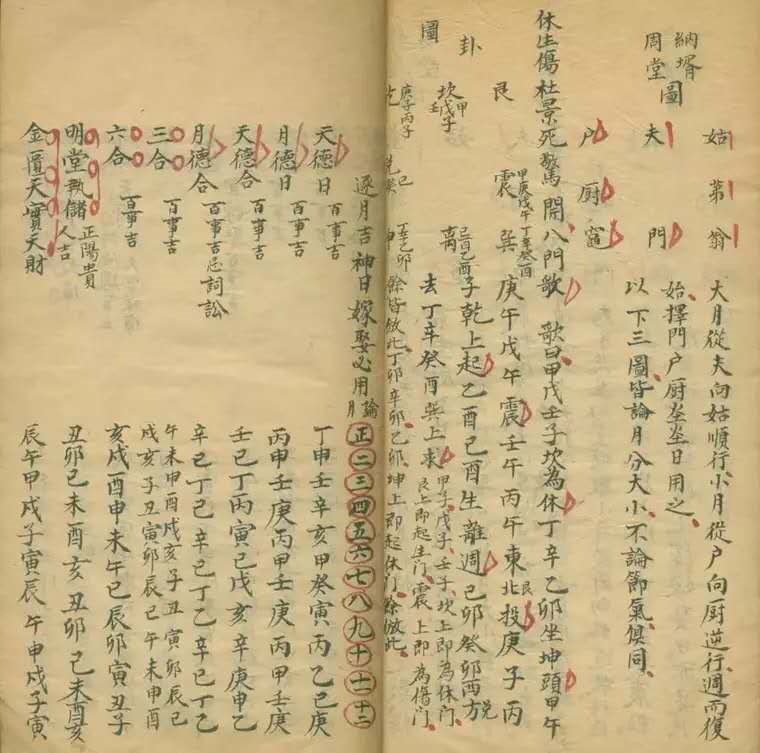 納壻
周堂
圖
姑 弟 翁
夫 門
户 厨 竈
大月從夫向姑順行小月從户向厨逆行週而復
始擇門户厨灶日用之
以下三圖皆論月分大小不論節氣俱同
休生傷杜景死驚開八門歌 歌曰甲戊壬子坎為休丁辛乙卯坐坤頭甲午
艮 震 巽
甲庚戊午
丁辛癸酉
庚午戊午震壬午丙午東北艮投庚子丙
卦
坎
甲戊子
壬
離
子乾上起乙酉己酉生離週己卯癸卯西方兌
圖
去丁辛癸酉巽上求
甲子戊子壬子坎上即為休門
艮上即起生門震上即為傷門
庚子丙子
丁辛乙卯
坤
餘皆倣此丁卯辛卯乙卯坤上即起休門餘倣此
逐月吉神日嫁娶必用論月 正二三四五六七八九十十一十二
天德日 百事吉 丁申壬辛亥甲癸寅丙乙巳庚
月德日 百事吉 丙甲壬庚丙甲壬庚丙甲壬庚
天德合 百事吉 壬巳丁丙寅己戊亥辛庚申乙
月德合 百事吉忌詞訟 辛己丁乙辛己丁乙辛己丁乙
三合 百事吉 午未申酉戌亥子丑寅卯辰巳
戌亥子丑寅卯辰巳午未申酉
六合 百事吉 亥戌酉申未午巳辰卯寅丑子
明堂執儲 正陽貴人吉 丑卯巳未酉亥丑卯巳未酉亥
金匱天寶天財 辰午申戌子寅辰午申戌子寅